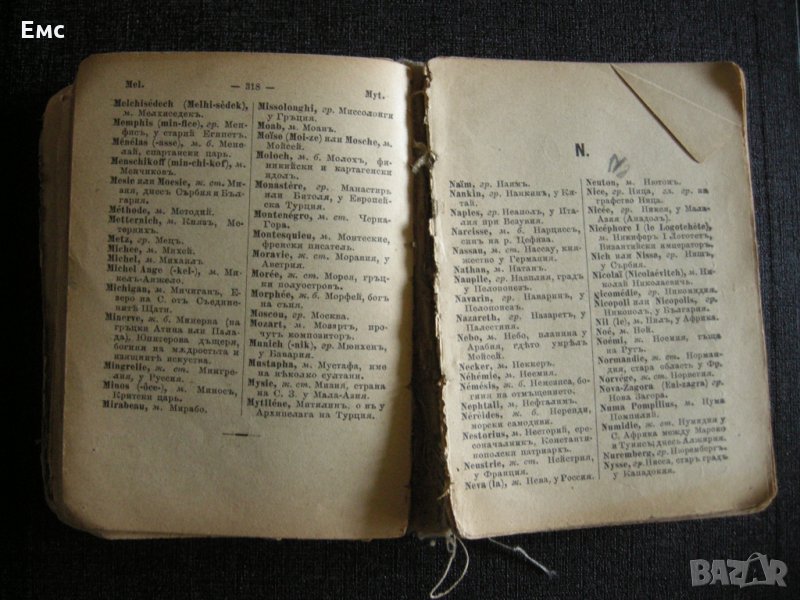 Емс
Mel.
— 318 —
Myt.
Melchisédech (Melhi-sédek),
м. Мелхиседекъ.
Memphis (min-fice), гр. Мем-
фисъ, у старий Египетъ.
Ménélas (-asse), м. б. Мене-
лай, спартански царь.
Menschikoff (min-chi-kof), м.
Менчиковъ.
Mesie или Moesie, ж. ст. Ми-
зия, днес Сърбия и Бъл-
гария.
Méthode, м. Методий.
Metternich, м. Князъ, Ме-
тернихъ.
Metz, гр. Мецъ.
Michee, м. Михей.
Michel, м. Михаилъ
Michel Ange (-kel-), м. Ми-
келъ-Анжело.
Michigan, м. Мичиганъ, Е-
зеро на С. отъ Съедине-
нитѣ Щати.
Minerve, ж. б. Минерва (на
гръцки Атина или Пала-
да), Юпитерова дъщеря,
богиня на мѫдростьта и
изящнитѣ искуства.
Mingrelie, ж. ст. Мингре-
лия, у Руссия.
Minos (-oce-), м. Миносъ,
Критски царь.
Mirabeau, м. Мирабо.
Missolonghi, гр. Миссолонги
у Гръция.
Moab, м. Моавъ.
Moïse (Moi-ze) или Mosche, м.
Мойсей.
Moloch, м. б. Молохъ, фи-
никийски и картагенски
идолъ.
Monastère, гр. Манастиръ
или Битоля, у Европей-
ска Турция.
Monténégro, м. ст. Черна-
Гора.
Montesquieu, м. Монтеские,
френски писатель.
Moravie, ж. ст. Моравия, у
Австрия.
Morée, ж. ст. Морея, гръц-
ки полуостровъ.
Morphée, м. б. Морфей, богъ
на съня.
Moscou, гр. Москва.
Mozart, м. Моцартъ, про-
чутъ композиторъ.
Munich (-nik), гр. Мюнхенъ,
у Бавария.
Mustapha, м. Мустафа, име
на нѣколко султани.
Mysie, ж. ст. Мизия, страна
на С. З. у Мала-Азия.
Mytilène, Митилинъ, о-въ у
Архипелага на Турция.
N.
Naïm, гр. Наимъ.
Nankin, гр. Нанкинъ, у Ки-
тай.
Naples, гр. Неаполъ, у Ита-
лия при Везувия.
Narcisse, м. б. Нарциссъ,
синъ на р. Цефиза.
Nassau, м. ст. Нассау, кня-
жество у Германия.
Nathan, м. Натанъ.
Nauplie, гр. Навплия, градъ
у Пелопонезъ.
Navarin, гр. Наваринъ, у
Пелопонеса.
Nazareth, гр. Назаретъ, у
Палестина.
Nebo, м. Небо, планина у
Арабия, гдѣто умрѣлъ
Мойсей.
Necker, м. Неккеръ.
Néhémie, м. Неемия.
Némésis, ж. б. Немезиса, богиня
на отмъщението.
Nephtali, м. Нефталимъ.
Néréides, ж. б. Нереиди,
морски самодиви.
Nestorius, м. Несторий, ере-
соначалникъ, Константи-
нополски патриархъ.
Neustrie, ж. ст. Нейстрия,
у Франция.
Neva (la), ж. Нева, у Россия.
Neuton, м. Нютонъ.
Nice, гр. Ница, гл. гр. на
графство Ница.
Nicée, гр. Никея, у Мала-
Азия (Анадолъ).
Nicéphore I (le Logothète),
м. Никифоръ I Логотетъ,
Византийски императоръ.
Nich или Nissa, гр. Нишъ,
у Сърбия.
Nicolaï (Nicolaévitch), м. Ни-
колай Николаевичъ.
Nicomédie, гр. Никомидия.
Nicopoli или Nicopolis, гр.
Никополъ, у България.
Nil (le), м. Нилъ, у Африка.
Noé, м. Ной.
Noémi, ж. Ноемия, тъща
на Рутъ.
Normandie, ж. ст. Норман-
дия, стара область у Фр.
Norvége, ж. ст. Норвегия.
Nova-Zagora (Eni-zagra) гр.
Нова Загора.
Numa Pompilius, м. Нума
Помпилий.
Numidie, ж. ст. Нумидия у
С. Африка между Мароко
и Тунисъ; днесъ Алжирия.
Nuremberg, гр. Нюрембергъ.
Nysse, гр. Нисса, старъ градъ
у Кападокия.
BAZAR